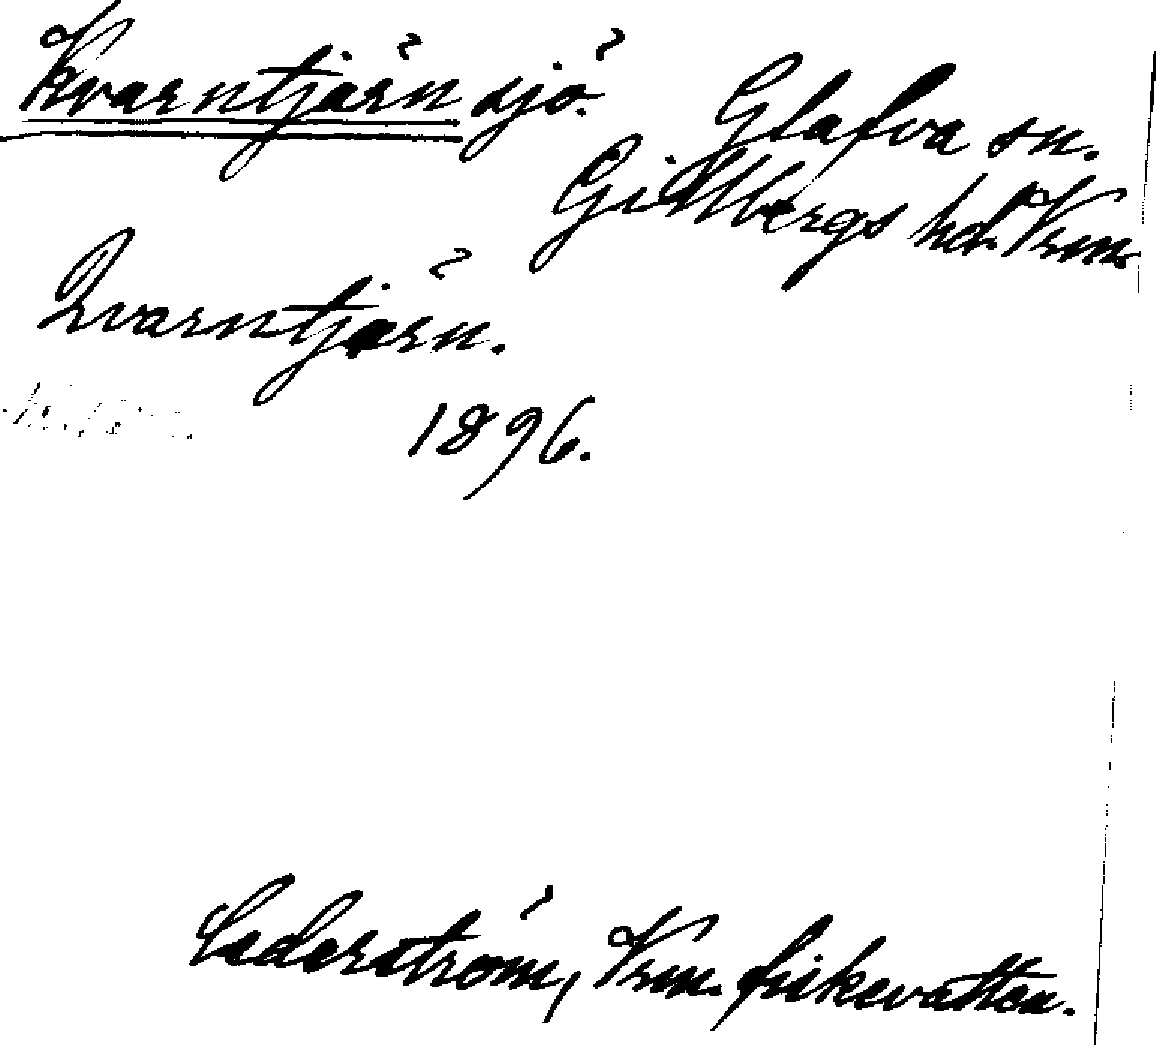 Kvarntjärn sjö.
Glafva sn.
Gillbergs hd. Vrm.
Qvarntjärn.
1896.
Cederström, Vrm. fiskevatten.